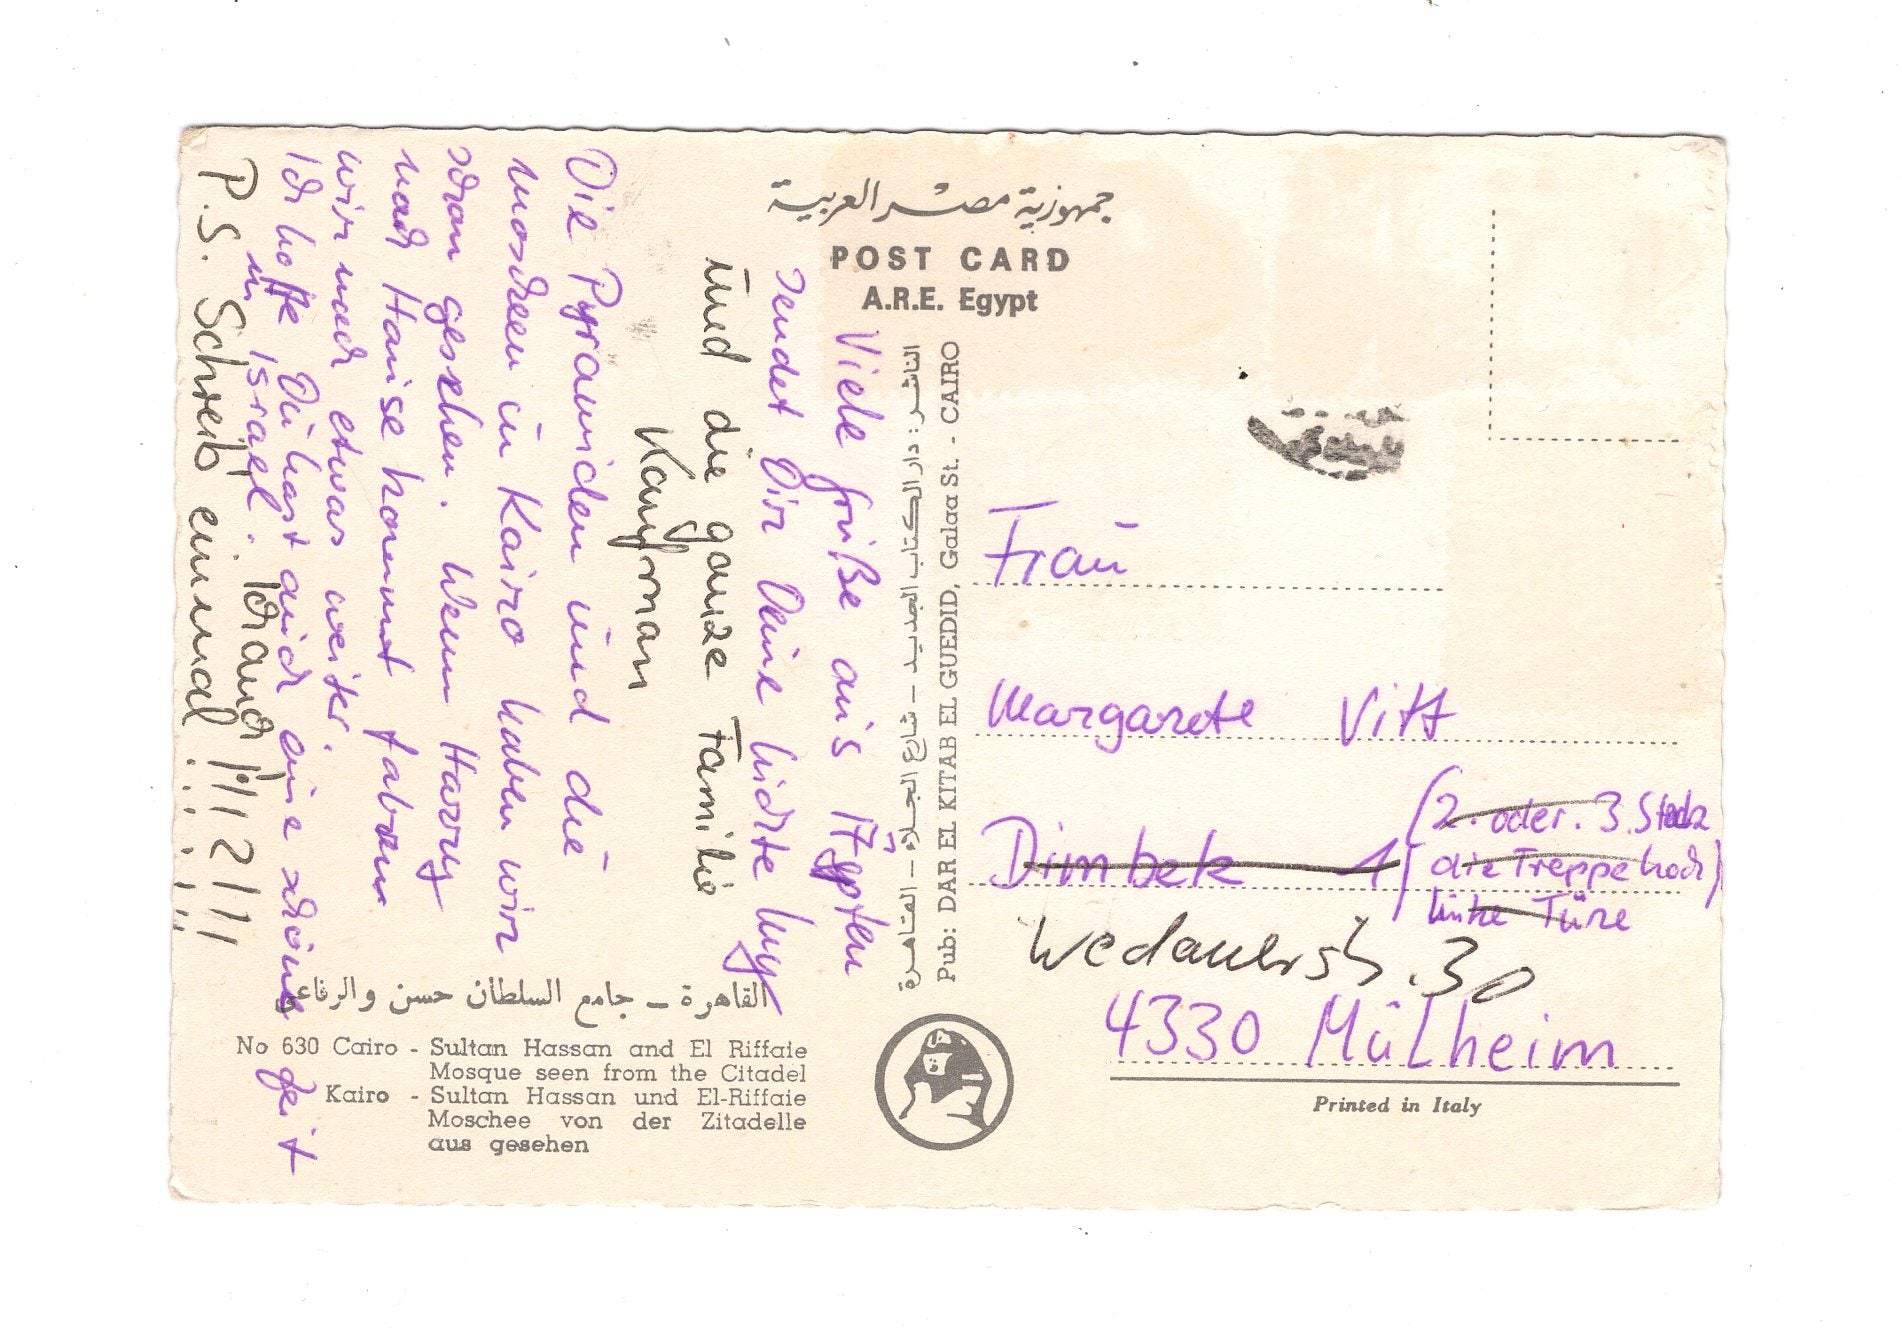 جمهورية مصر العربية
POST CARD
A.R.E. Egypt
Viele Grüße aus Ägypten
sendet Dir Deine
und die ganze Familie
Kaufman
Die Pyramiden und die
Moscheen in Kairo haben wir
schon gesehen. Wenn Harry
nach Hause kommt fahren
wir noch etwas weiter.
Ich hoffe Du hast auch eine schöne Zeit
in Israel. Ich auch!!!!
P.S. Schreib' einmal!!!!!
الناشر: دار الكتاب الجديد - شارع الجلاء - القاهرة
Pub: DAR EL KITAB EL GUEDID, Galaa St. - CAIRO
Frau
Margarete Vitt
Dimbek 1
(2. oder. 3. Stock
die Treppe hoch)
linke Türe
30
4330 Mülheim
القاهرة - جامع السلطان حسن والرفاعي
No 630 Cairo - Sultan Hassan and El Riffaie
Mosque seen from the Citadel
Kairo - Sultan Hassan und El-Riffaie
Moschee von der Zitadelle
aus gesehen
Printed in Italy